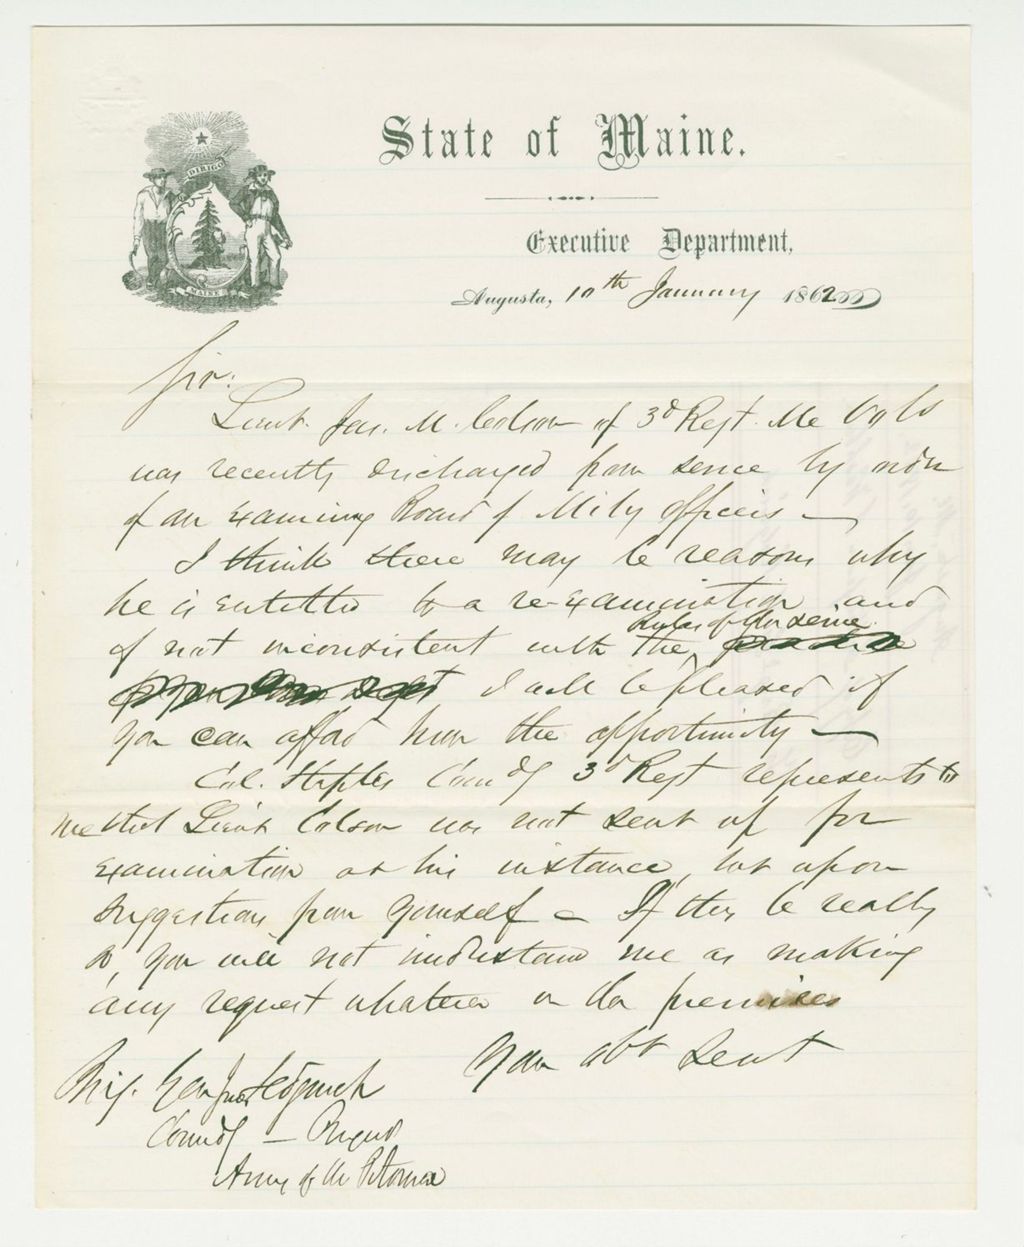 DIRIGO
MAINE
State of Maine.
Executive Department,
Augusta, 10th January 1862
Sir:
Lieut. Jas. M. Colson of 3d Regt. Me Vols
was recently discharged from service by order
of an Examining Board of Mil'y Officers —
I think there may be reasons why
he is entitled to a re-examination and
Rules of the service
if not inconsistent with the
I will be pleased if
you can afford him the opportunity —
Col. Staples Comdg 3d Regt represents to
me that Lieut Colson was not sent up for
examination at his instance, but upon
suggestions from yourself — If this be really
so, you will not understand me as making
any request whatever in the premises
Your obt Servt
Brig. Gen Jno. Sedgwick
Comdg — Brigade
Army of the Potomac